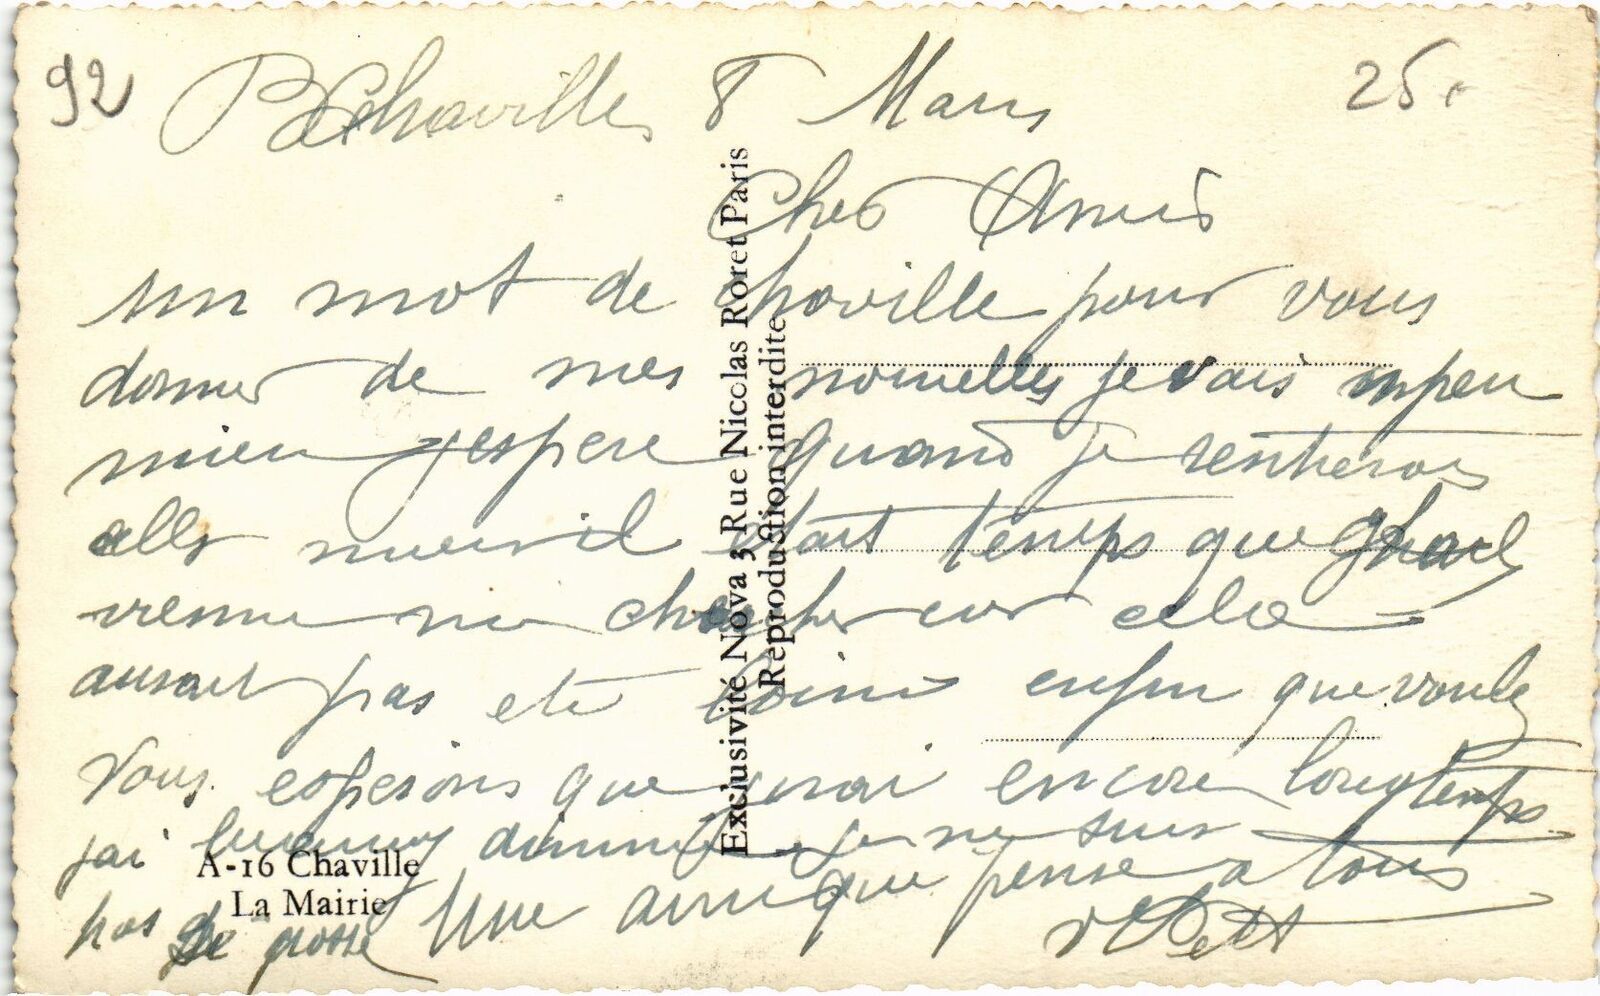 92
Chaville 8 Mars
25
Chers Amis
un mot de Chaville pour vous
donner de mes nouvelles je vais un peu
mieu j'espere quand je rentherais
alle mieu il etait temps que
vienne me chercher car cela
aurait pas ete loin enfin que voulez
Vous esperons que j'irai encore longtemps
jai diminue je ne suis
pas grosse Une amie que pense a tous
Exclusivité Nova 3 Rue Nicolas Roret Paris
Reproduction interdite
A-16 Chaville
La Mairie